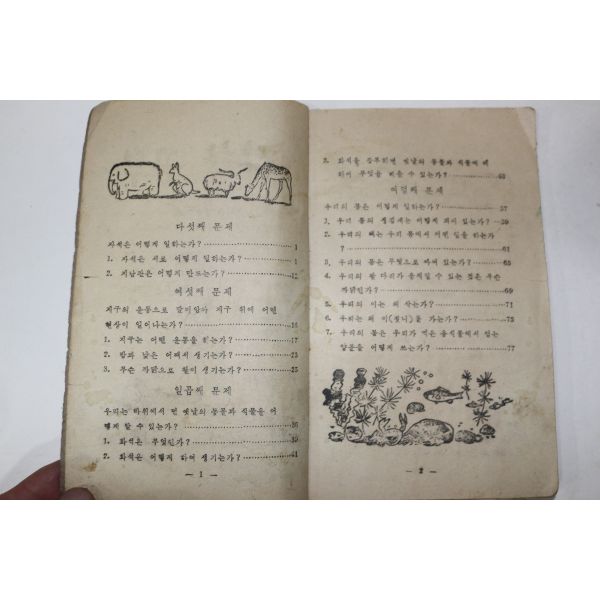 다섯째 문제
자석은 어떻게 일하는가? 1
1. 자석은 서로 어떻게 일하는가? 1
2. 지남판은 어떻게 만드는가? 12
여섯째 문제
지구의 운동으로 말미암아 지구 위에 어떤
현상이 일어나는가? 16
1. 지구는 어떤 운동을 하는가? 17
2. 밤과 낮은 어떠게 생기는가? 23
3. 무슨 까닭으로 철이 생기는가? 25
일곱째 문제
우리는 바위에서 먼 옛날의 동물과 식물을 어
떻게 알 수 있는가? 36
1. 화석은 무엇인가? 39
2. 화석은 어떻게 하여 생기는가? 41
— 1 —
3. 화석을 공부하면 옛날의 동물과 식물에 대
하여 무엇을 배울 수 있는가? 48
여덟째 문제
우리의 몸은 어떻게 일하는가? 57
1. 우리 몸의 생김새는 어떻게 되어 있는가? 59
2. 우리의 뼈는 우리 몸에서 어떤 일을 하는가
? 61
3. 우리의 몸은 무엇으로 싸여 있는가? 65
4. 우리의 팔 다리가 움직일 수 있는 것은 무슨
까닭인가? 69
5. 우리의 이는 왜 자는가? 71
6. 우리는 왜 이(젖니)를 가는가? 73
7. 우리의 몸은 우리가 먹은 음식물에서 얻는
양분을 어떻게 쓰는가? 77
— 2 —